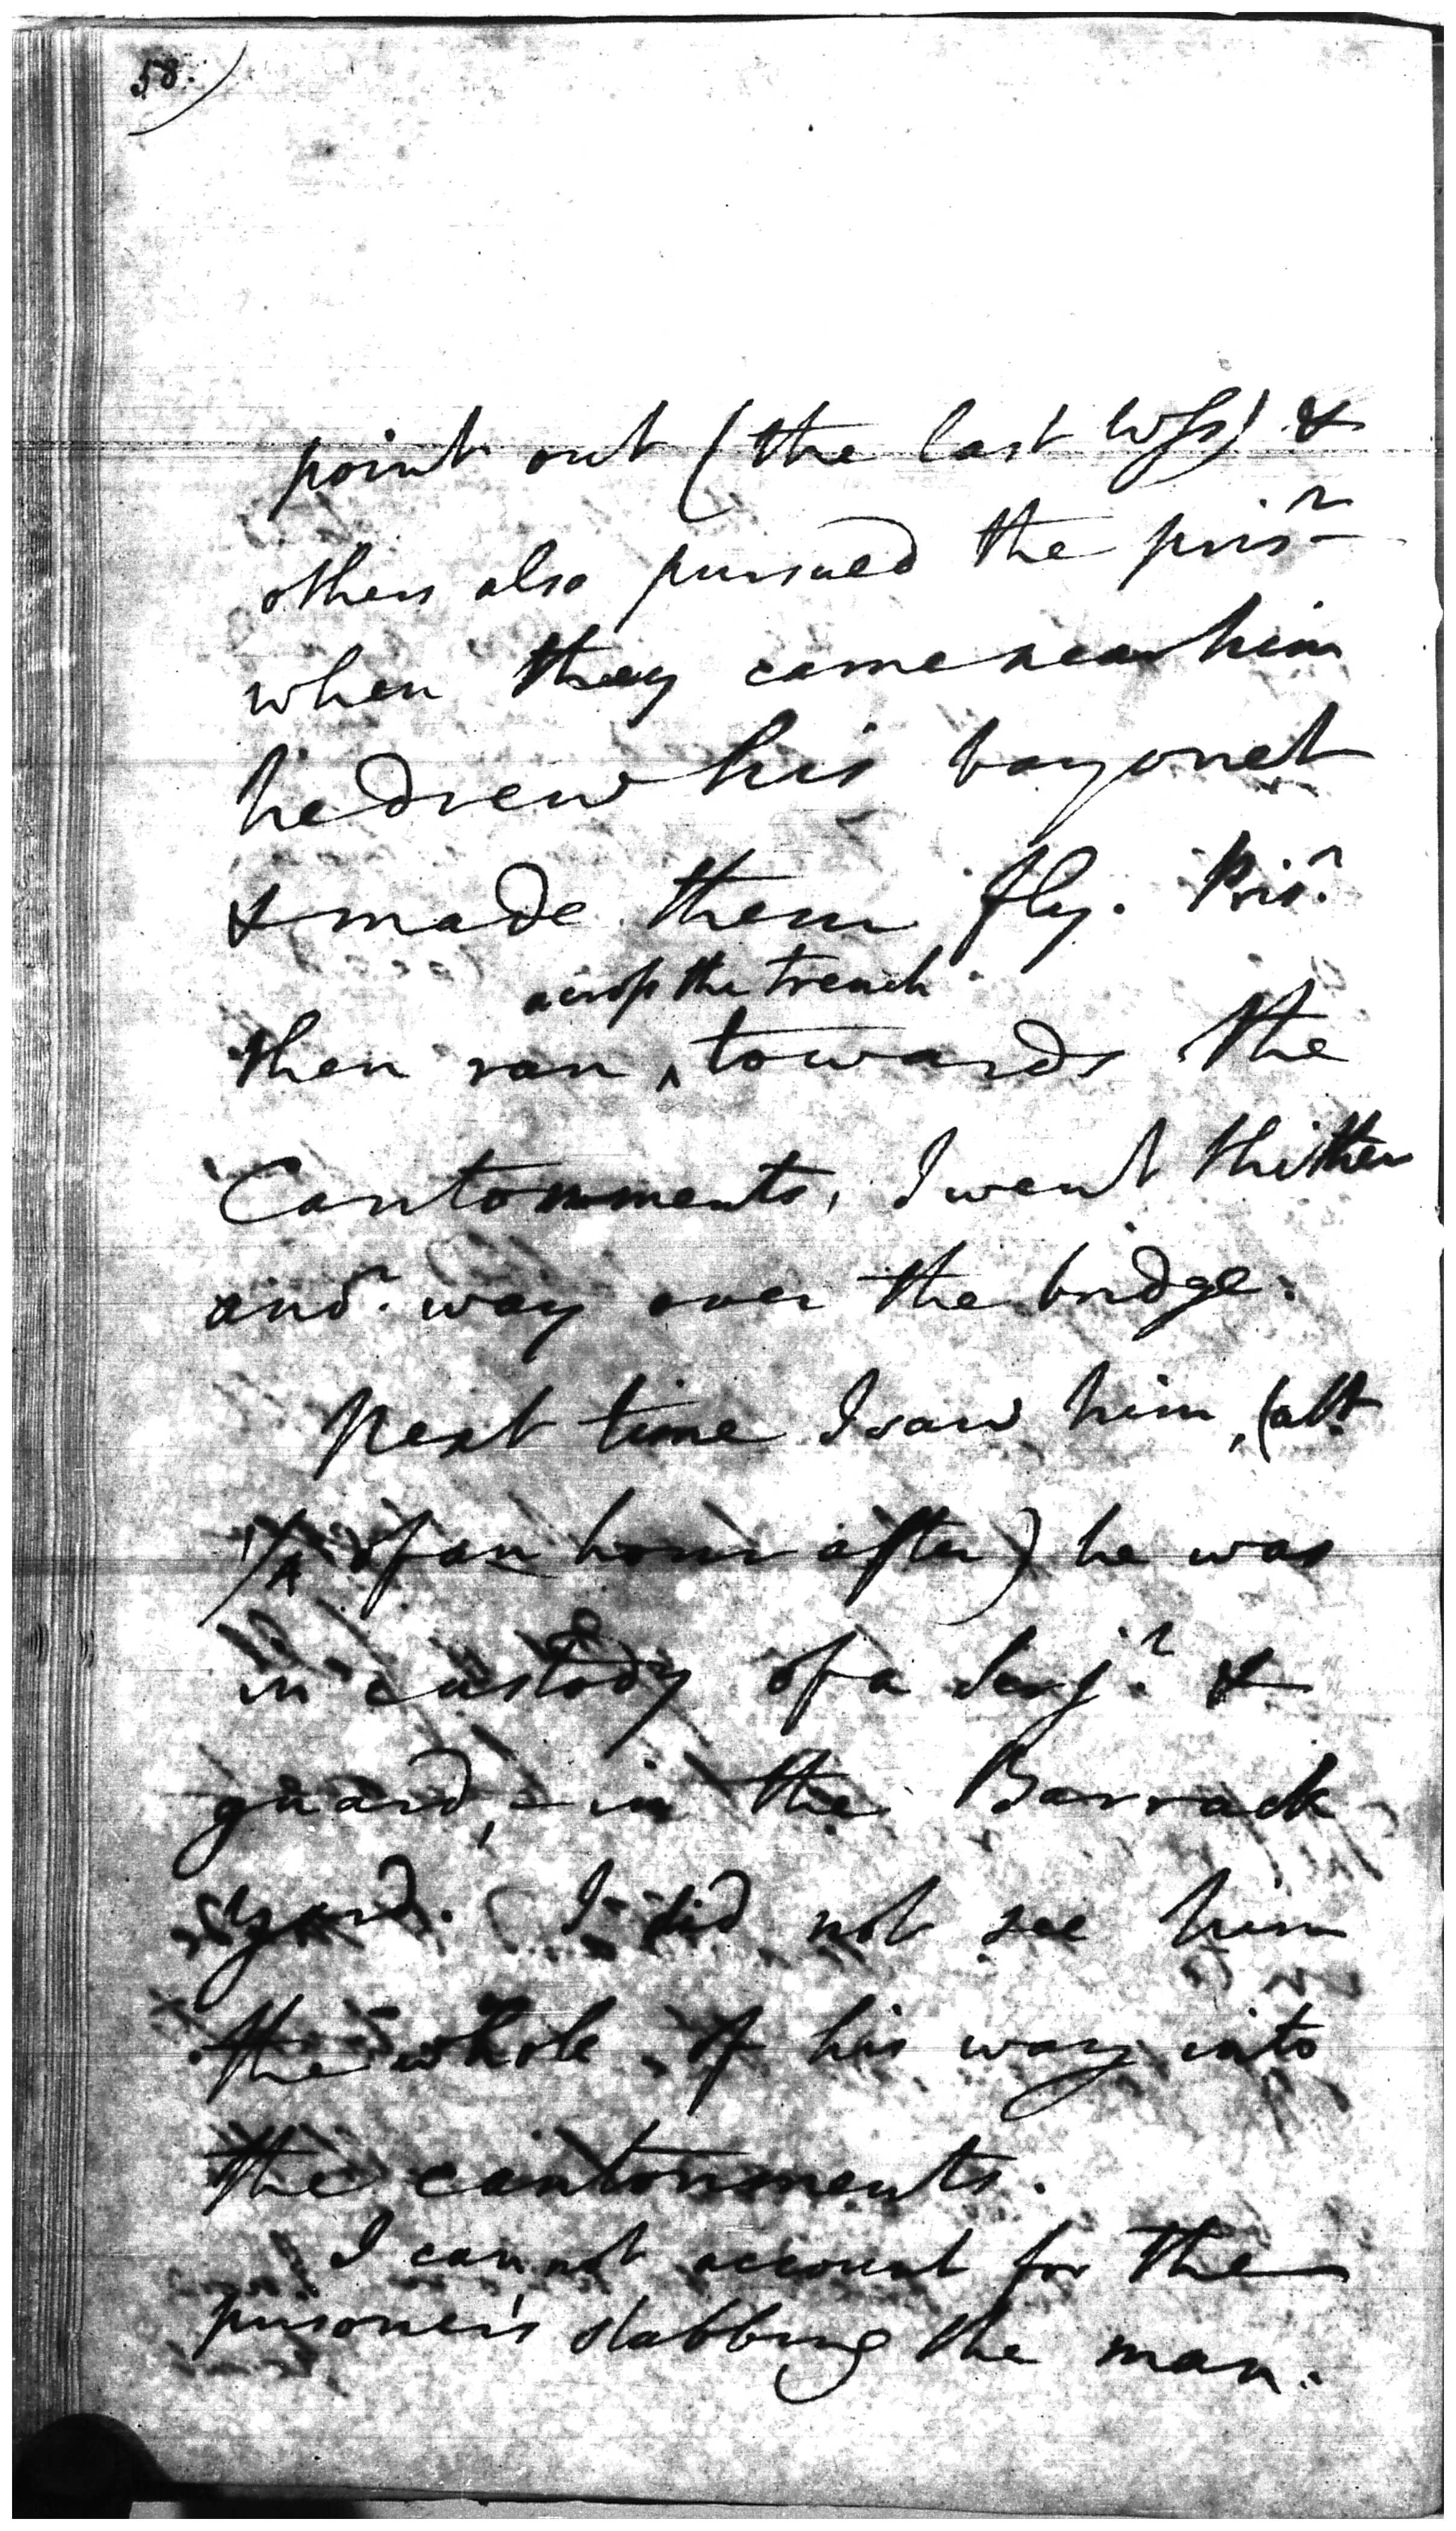 58.)
point out (the last wss) &
others also pursued the prisr
when they came near him
he drew his bayonet
& made them fly. Prisr
across the trench
then ran ^ towards the
Cantonments, I went thither
and way over the bridge.
Next time I saw him, (abt
1/4 of an hour after) he was
in custody of a Serjt &
guard, - in the Barrack
yard. I did not see him
the whole of his way into
the cantonments.
I cannot account for the
prisoner's stabbing the man.